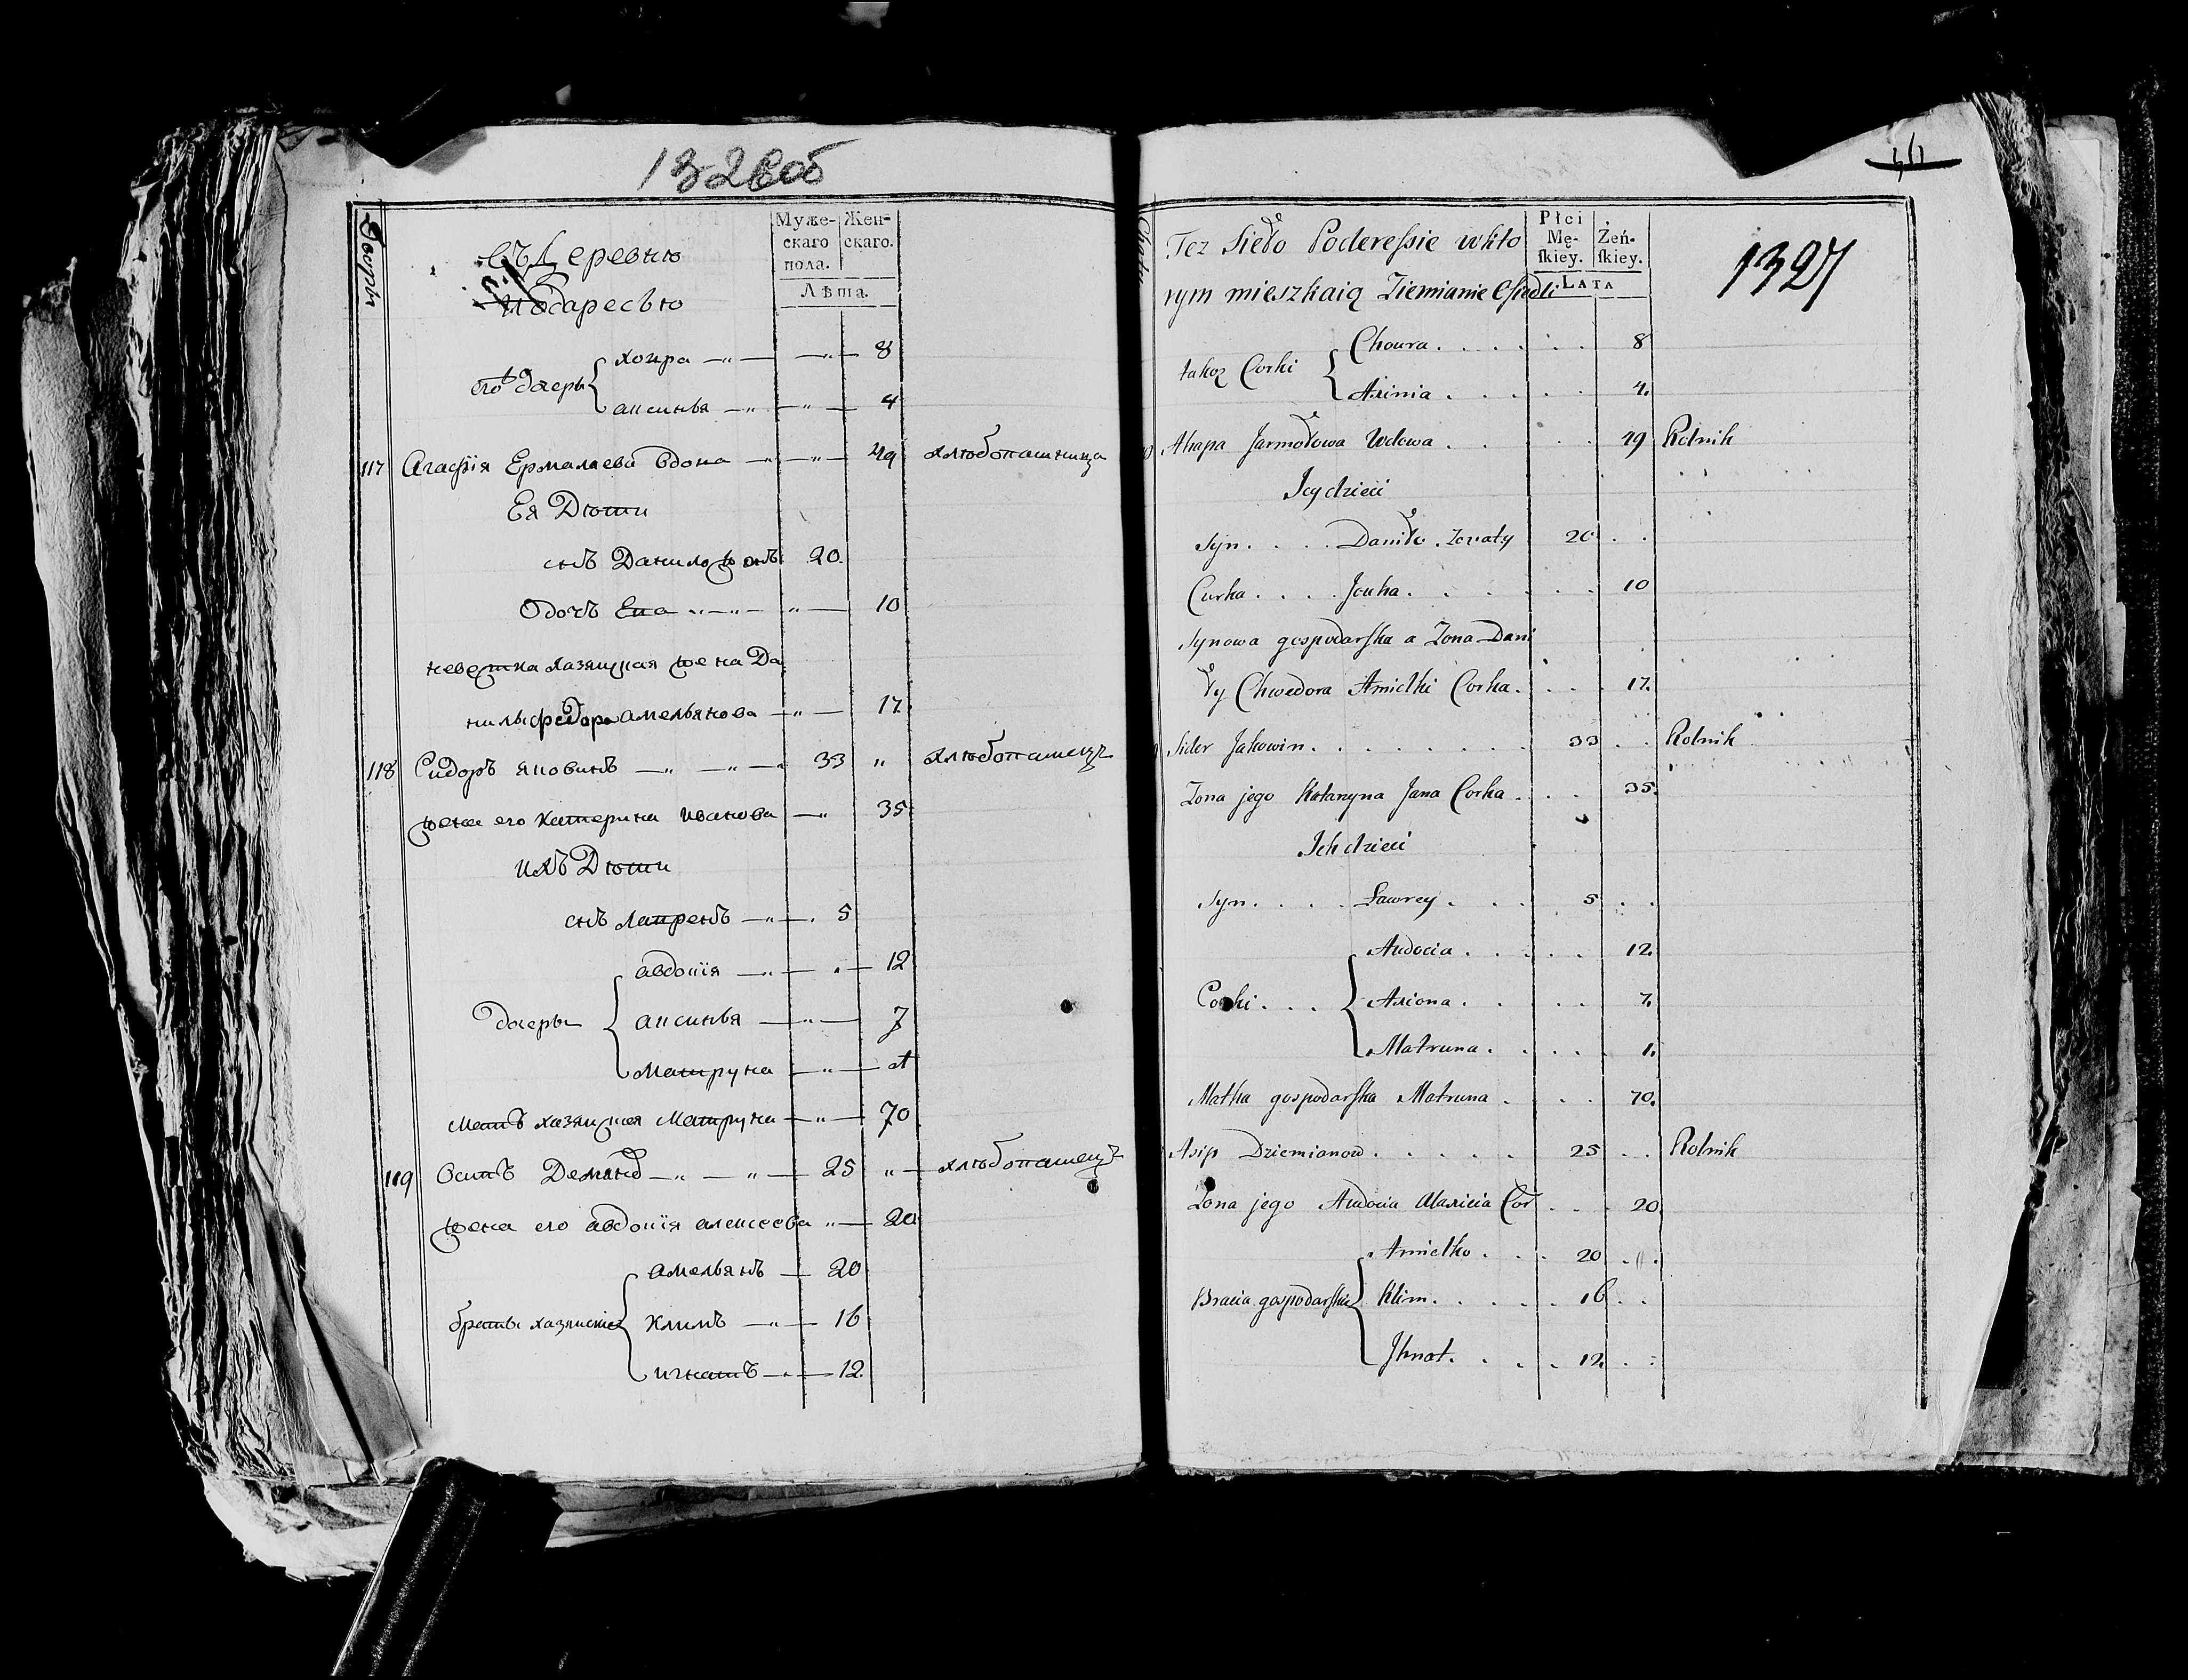 132 об
Дворы
въ Деревню
Подаресью
Муже-
скаго
пола.
Жен-
скаго.
Лѣта.
его дочеры { хоура — „ — — „ — 8
аксинья — „ — „ — 4
117 Агафія Ермалаева вдова — „ — „ — 49 хлѣбопашница
Ея Дѣти
снъ Данило жонъ 20.
Дочъ Ева „ — „ — „ — 10
невестка хазяцкая жена Да
нилы федора амельянова — „ — 17.
118 Сидоръ яковинъ — „ — „ — 33 „ хлѣбопашецъ
жена его Катерина иванова — „ 35
ихъ Дѣти
снъ лавренъ — „ — . 5
дочеры { авдокія — „ — „ — 12
аксинья — „ — 7
Матруна — „ — 1
Матъ хазяцкая Матруна — „ — 70
119 Осипъ Демянов — „ — „ — 25 „ — хлѣбопашецъ
жена его авдокія алексеева „ — 20
браты хазяиские { амельянъ — 20
климъ — „ — 16
игнатъ — „ — 12.
Chaty
Tez Sieło Poderessie w kto
rym mieszkaią Ziemianie Osiedli
Płci
Mę-
skiey.
Żeń-
skiey.
LATA
1327
takoż Corki { Choura . . . . . . 8
Axinia . . . . . 4.
Ahapa Jarmołowa Wdowa . . . . 49 Rolnik
Jey dzieci
Syn . . . . Daniło . Zonaty 20 . .
Curka . . . . Jeuka . . . . . . 10
Synowa gospodarska a Zona Dani
ły Chwedora Amielki Corka . . . . 17.
Sider Jakowin . . . . . . . . 33 . . Rolnik
Zona jego Katarzyna Jana Corka . . . 35.
Ich dzieci
Syn . . . . Ławrey . . . . 5 . .
Corki . . . { Audocia . . . . . 12.
Axiona . . . . 7.
Matruna . . . . . 1.
Matka gospodarska Matruna . . . . 70.
Asip Dziemianow . . . . . . 25 . . Rolnik
Zona jego Audocia Alaxieia Cor . . . 20
Bracia gospodarskie { Amielko . . . . 20 . „ .
Klim . . . . . 16 . .
Jhnat . . . . 12. . .